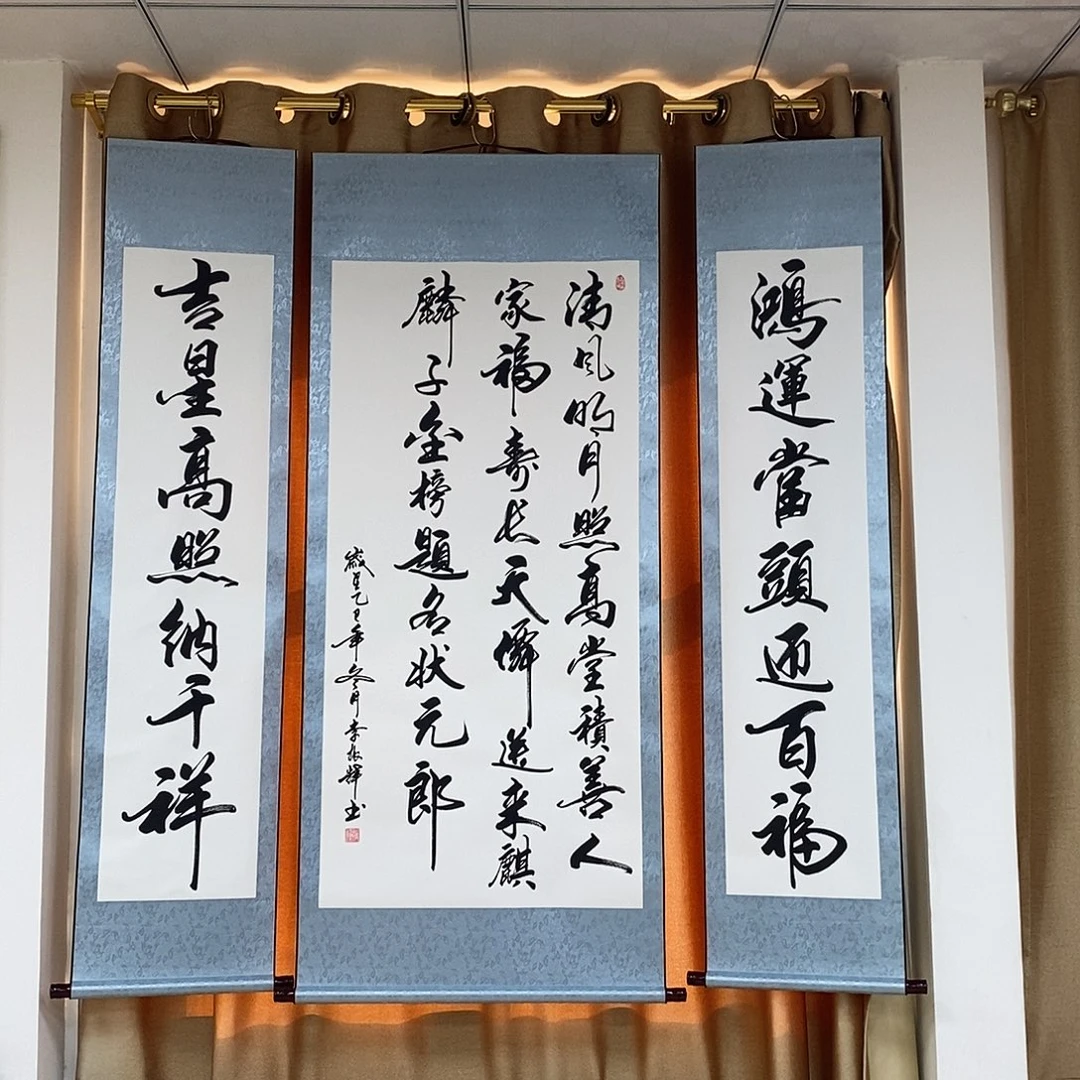 鴻運當頭迎百福
清風明月照高堂積善人
家福壽長天僊送來麒
麟子金榜題名狀元郎
歲呈乙巳年冬月李振輝书
吉星高照納千祥